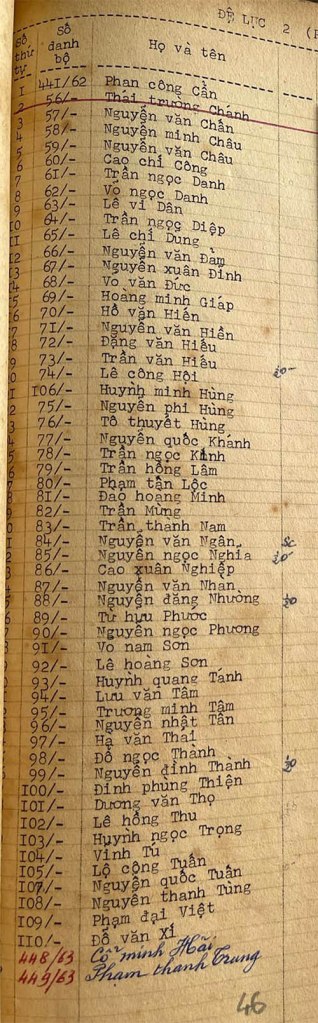 ĐỆ LỤC 2 (P
Số thứ tự Số danh bộ Họ và tên
I 44I/62 Phan công Cẩn
2 56/- Thái trường Chánh
3 57/- Nguyễn văn Chấn
4 58/- Nguyễn minh Châu
5 59/- Nguyễn văn Châu
6 60/- Cao chí Công
7 6I/- Trần ngọc Danh
8 62/- Võ ngọc Danh
9 63/- Lê vi Dân
0 64/- Trần ngọc Diệp
II 65/- Lê chí Dung
2 66/- Nguyễn văn Đàm
3 67/- Nguyễn xuân Đình
4 68/- Võ văn Đức
5 69/- Hoàng minh Giáp
6 70/- Hồ văn Hiến
7 7I/- Nguyễn văn Hiền
8 72/- Đặng văn Hiếu
9 73/- Trần văn Hiếu
0 74/- Lê công Hội
I I06/- Huỳnh minh Hùng
2 75/- Nguyễn phi Hùng
3 76/- Tô thuyết Hùng
4 77/- Nguyễn quốc Khánh
5 78/- Trần ngọc Kính
6 79/- Trần hồng Lâm
7 80/- Phạm tấn Lộc
8 8I/- Đào hoàng Minh
9 82/- Trần Mừng
0 83/- Trần thanh Nam
I 84/- Nguyễn văn Ngân Sc
2 85/- Nguyễn ngọc Nghĩa
3 86/- Cao xuân Nghiệp
87/- Nguyễn văn Nhan
88/- Nguyễn đăng Nhường
89/- Từ hữu Phước
90/- Nguyễn ngọc Phương
9I/- Võ nam Sơn
92/- Lê hoàng Sơn
93/- Huỳnh quang Tánh
94/- Lưu văn Tâm
95/- Trương minh Tâm
96/- Nguyễn nhật Tân
97/- Hạ văn Thái
98/- Đỗ ngọc Thành
99/- Nguyễn đình Thành
I00/- Đinh phụng Thiện
I0I/- Dương văn Thọ
I02/- Lê hồng Thu
I03/- Huỳnh ngọc Trọng
I04/- Vĩnh Tú
I05/- Lộ công Tuấn
I07/- Nguyễn quốc Tuấn
I08/- Nguyễn thanh Tùng
I09/- Phạm đại Việt
II0/- Đỗ văn Xí
448/63 Cổ minh Hải
449/63 Phạm thanh Trung
46